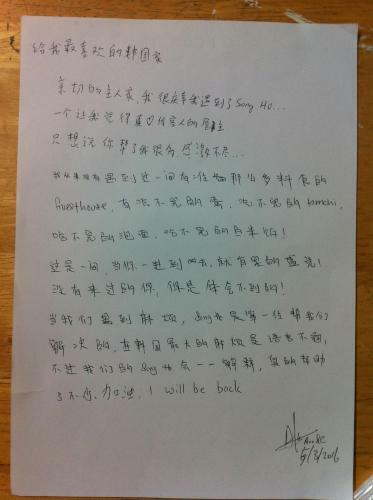 给我最喜欢的韩国家
亲切的主人家，我很庆幸我遇到了Song Ho...
一个让我觉得真♡待客人的屋主
只想说你帮了我很多，感激不尽...
我从来没有遇到过一间有准备那么多料食的
Guesthouse，有吃不完的蛋，吃不完的kimchi，
吃不完的泡面，吃不完的白米饭！
这是一间，当你一进到去，就有家的感觉！
没有来过的你，你是体会不到的！
当我们遇到麻烦，Song Ho是第一位帮我们
解决的，在韩国最大的麻烦是语言不通，
不过我们的Song Ho会一一解释，真的帮助
了不少。加油，I will be back
5/3/2016